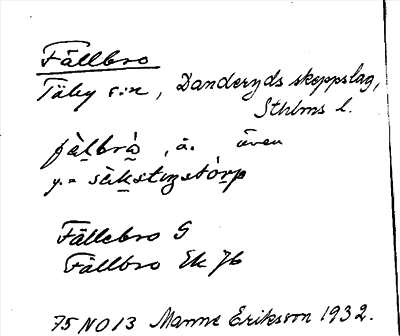 Fällbro
Täby s:n, Danderyds skeppslag,
Sthlms l.
fälbrò, ä. även
y.= säkstugstòrp
Fällebro G
Fällbro Ek 76
75 NO 13 Manne Eriksson 1932.